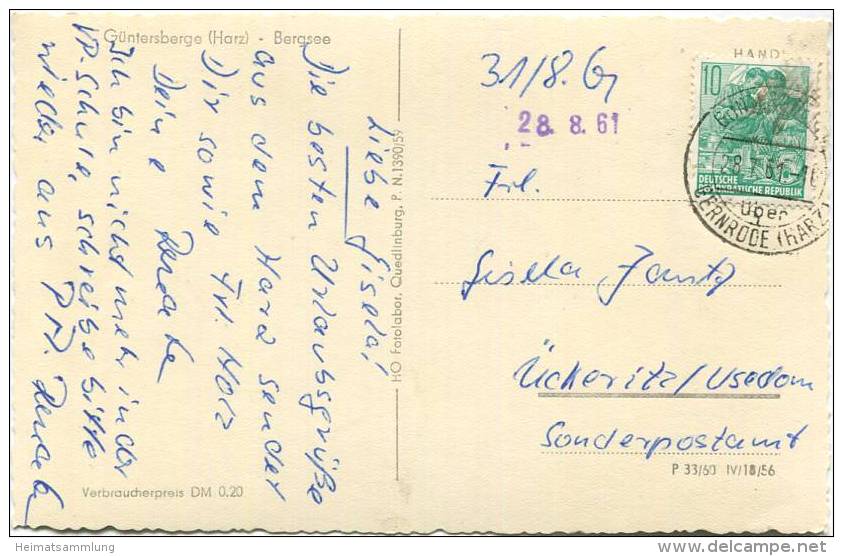 Güntersberge (Harz) - Bergsee
Liebe Gisela!
Die besten Urlaubsgrüße
aus dem Harz sendet
Dir sowie Frl. Holz
Deine
Renate
Ich bin nicht mehr in der
VP. Schule, schreibe bitte
wieder aus P M. Renate
Verbraucherpreis DM 0.20
HO Fotolabor, Quedlinburg, P. N.1390/59
31/8. 61
28. 8. 61
HAND
10
DEUTSCHE
DEMOKRATISCHE REPUBLIK
über
GERNRODE (HARZ)
Frl.
Gisela
Ückeritz/Usedom
Sonderpostamt
P 33/60 IV/18/56
Heimatsammlung
www.delcampe.net